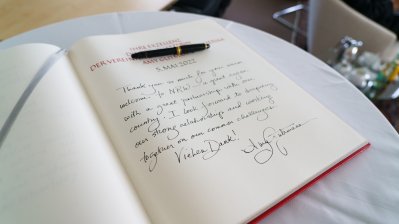 IHRE EXZELLENZ
DER VEREIN
5. MAI 2022
Thank you so much for your warm
welcome to NRW, a great region
with a great partnership with our
country. I look forward to deepening
our strong relationships and working
together on our common challenges.
Vielen Dank!